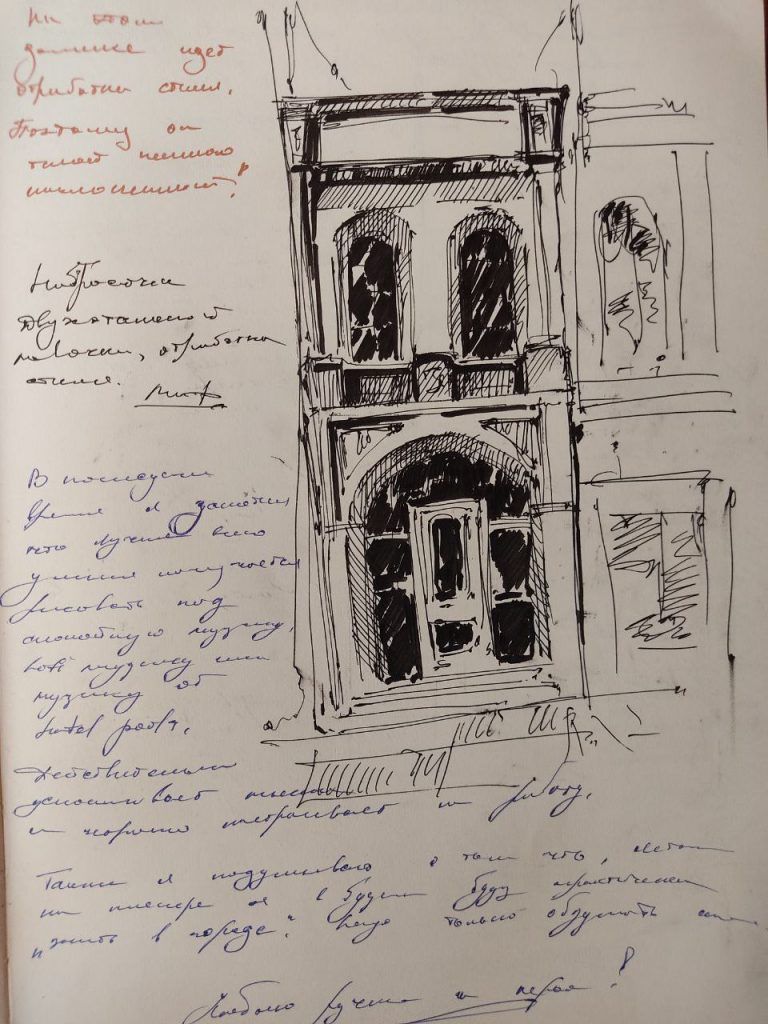 На этом
домике идет
отработка стиля.
Поэтому он
такой немного
наклоненный!
Набросочки
двухэтажной
, отработка
стиля.
В последнее
время я заметил
что лучше всего
у меня получается
рисовать под
спокойную музыку,
lofi музыку или
музыку от
hotel pools.
Действительно
успокаивает
и хорошо настраивает на работу.
Также я подумываю о том что, летом
на пленере я буду практически
"жить в городе". Надо только обдумать
ручки и перья!